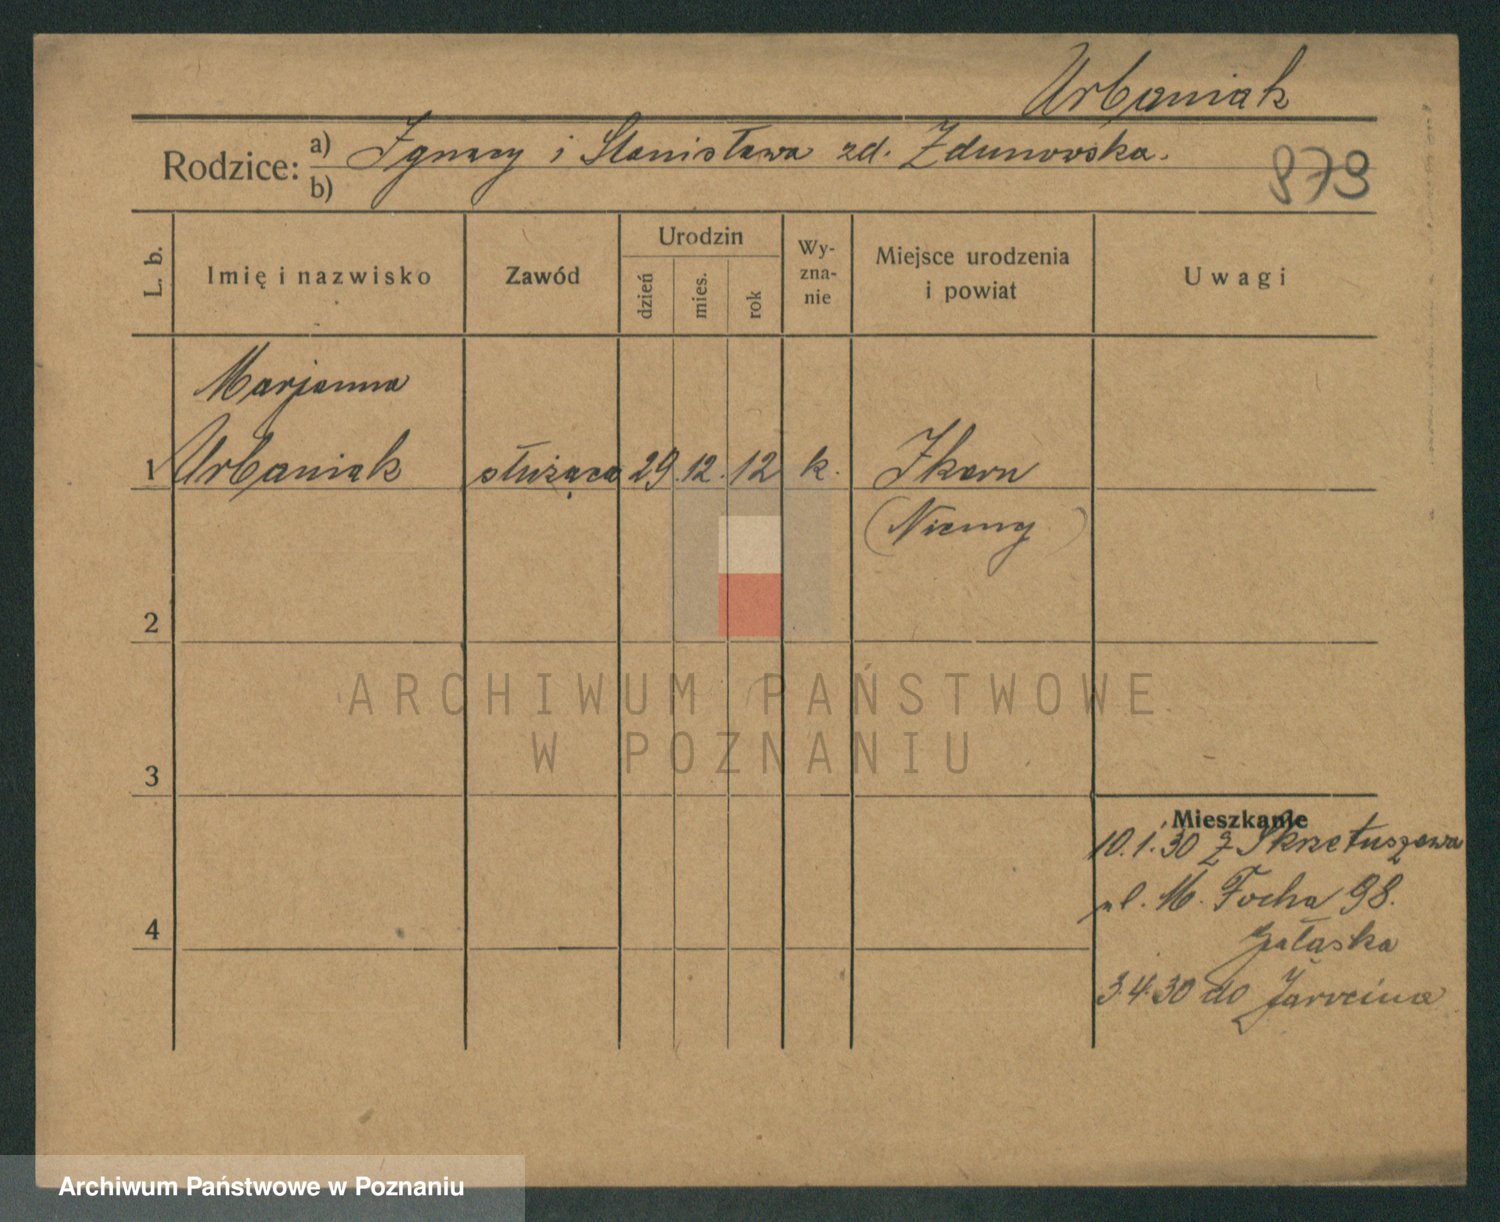 Urbaniak
Rodzice: a) Ignacy i Stanisława zd. Zdunowska.
b)
979
L. b.
Imię i nazwisko
Zawód
Urodzin
dzień
mies.
rok
Wy-
zna-
nie
Miejsce urodzenia
i powiat
Uwagi
Marjanna
1 Urbaniak służąca 29. 12. 12 k.
(Niemcy)
2
ARCHIWUM PAŃSTWOWE
W POZNANIU
3
Mieszkanie
10.1.30 z Skrzetuszewa
ul. M. Focha 98.
Gałąska
4
3.4.30 do Jarocina
Archiwum Państwowe w Poznaniu